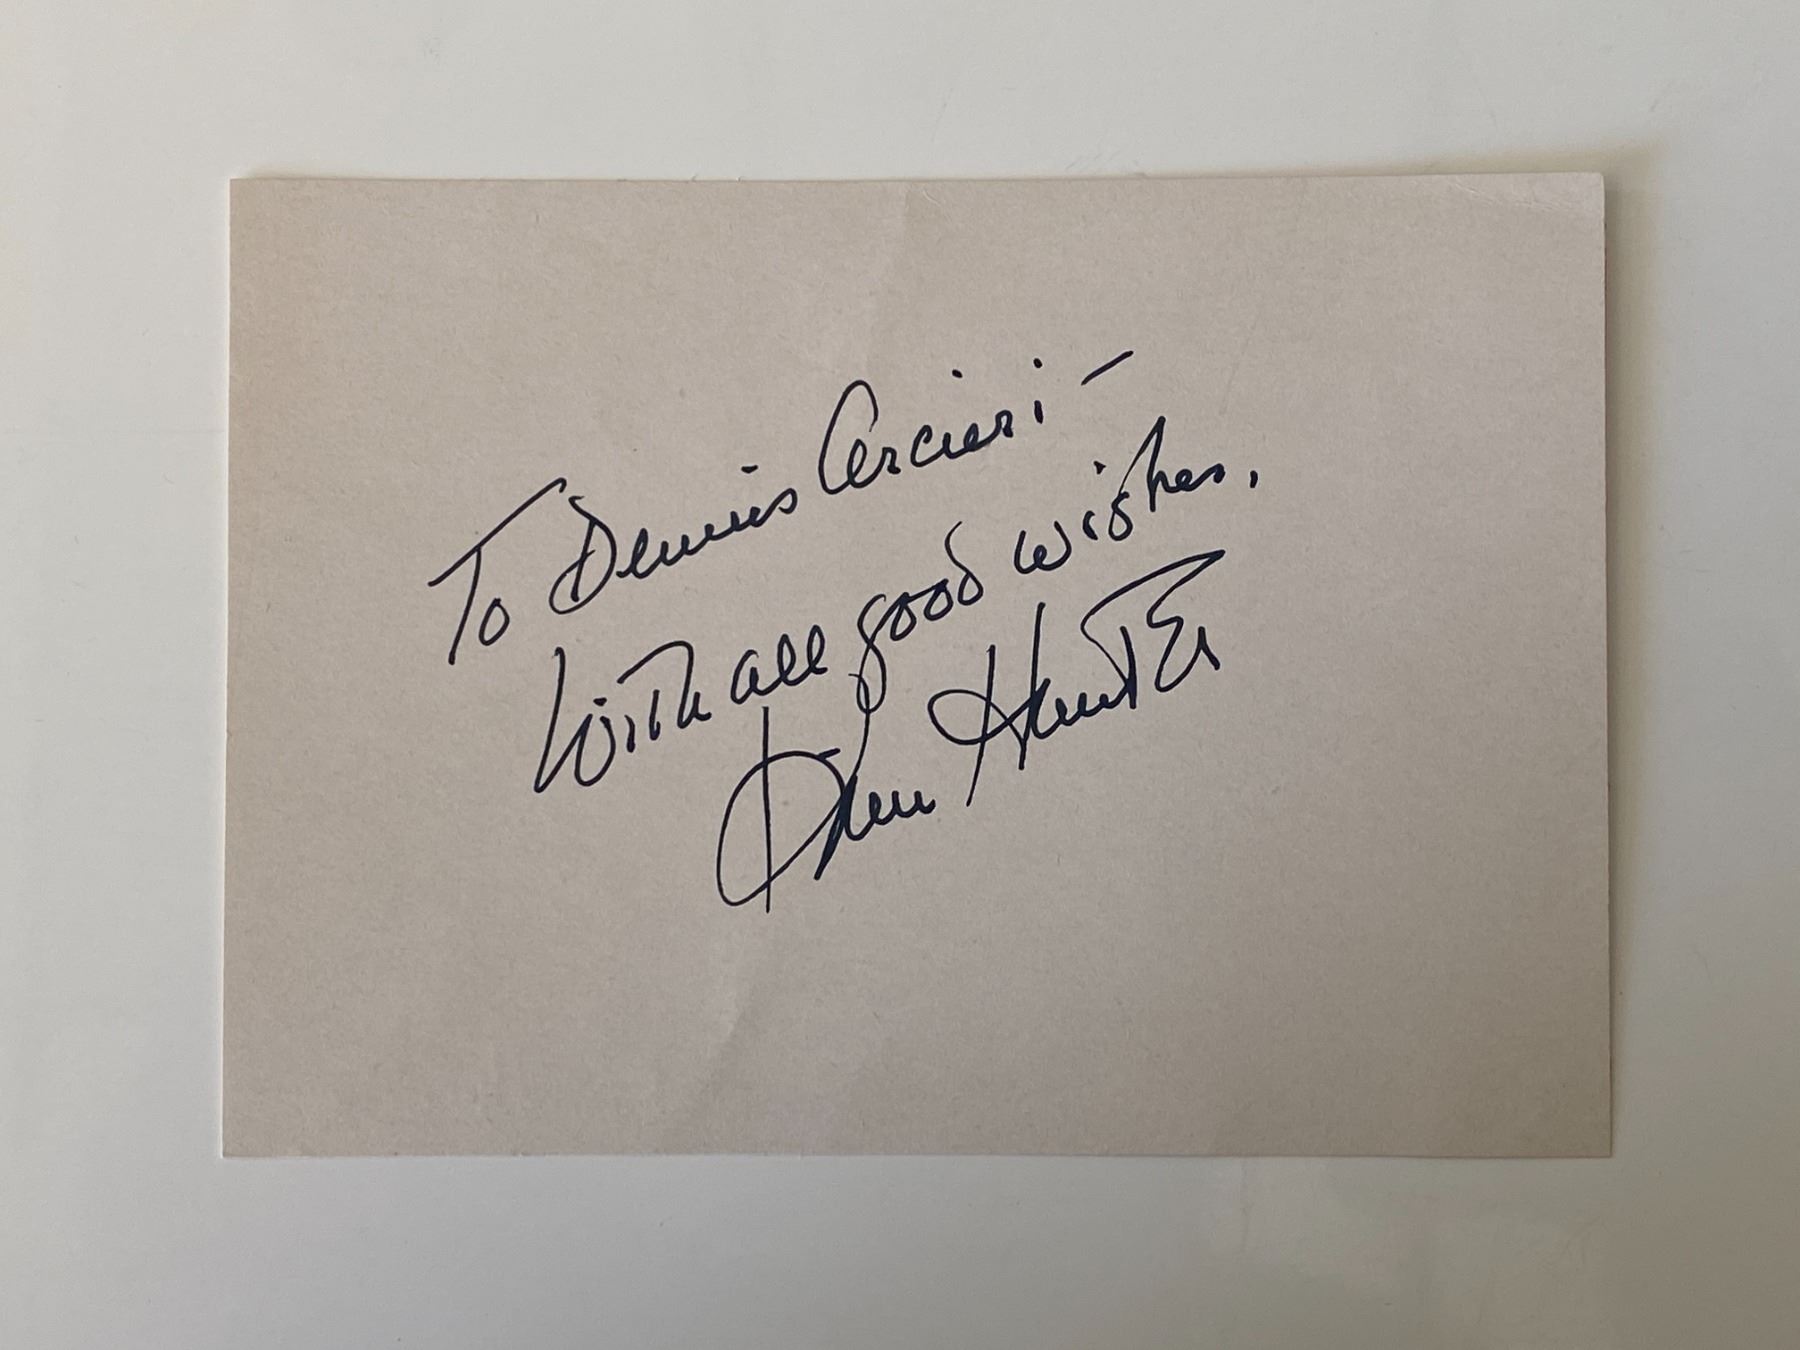 To Dennis Cercieri —
With all good wishes.
Kim Hunter